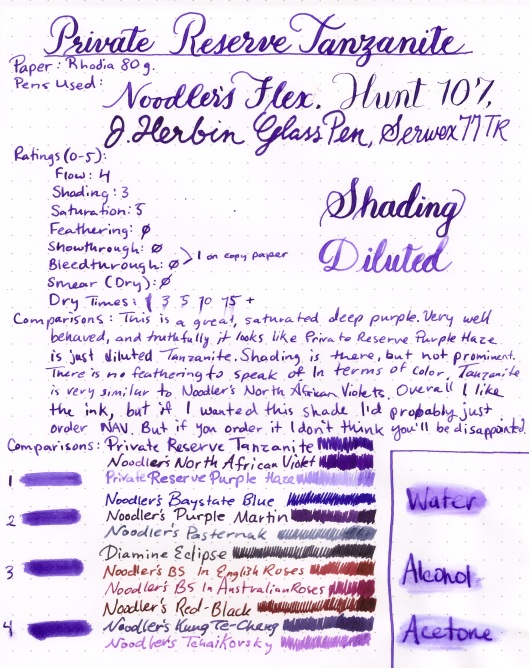 Private Reserve Tanzanite
Paper: Rhodia 80g.
Pens Used: Noodler's Flex, Hunt 107,
J. Herbin Glass Pen, Serwex 77TR
Ratings (0-5):
Flow: 4
Shading: 3
Saturation: 5
Feathering: Ø
Showthrough: Ø
Bleedthrough: Ø
1 on copy paper
Smear (Dry): Ø
Dry Times: 1 3 5 10 15 +
Shading
Diluted
Comparisons: This is a great, saturated deep purple. Very well
behaved, and truthfully it looks like Private Reserve Purple Haze
is just diluted Tanzanite. Shading is there, but not prominent.
There is no feathering to speak of. In terms of color, Tanzanite
is very similar to Noodler's North African Violets. Overall I like
the ink, but if I wanted this shade I'd probably just
order NAV. But if you order it I don't think you'll be disappointed.
Comparisons: Private Reserve Tanzanite
Noodler's North African Violet
Private Reserve Purple Haze
Noodler's Baystate Blue
Noodler's Purple Martin
Noodler's Pasternak
Diamine Eclipse
Noodler's BS In English Roses
Noodler's BS In Australian Roses
Noodler's Red-Black
Noodler's Kung Te-Cheng
Noodler's Tchaikovsky
1
2
3
4
Water
Alcohol
Acetone